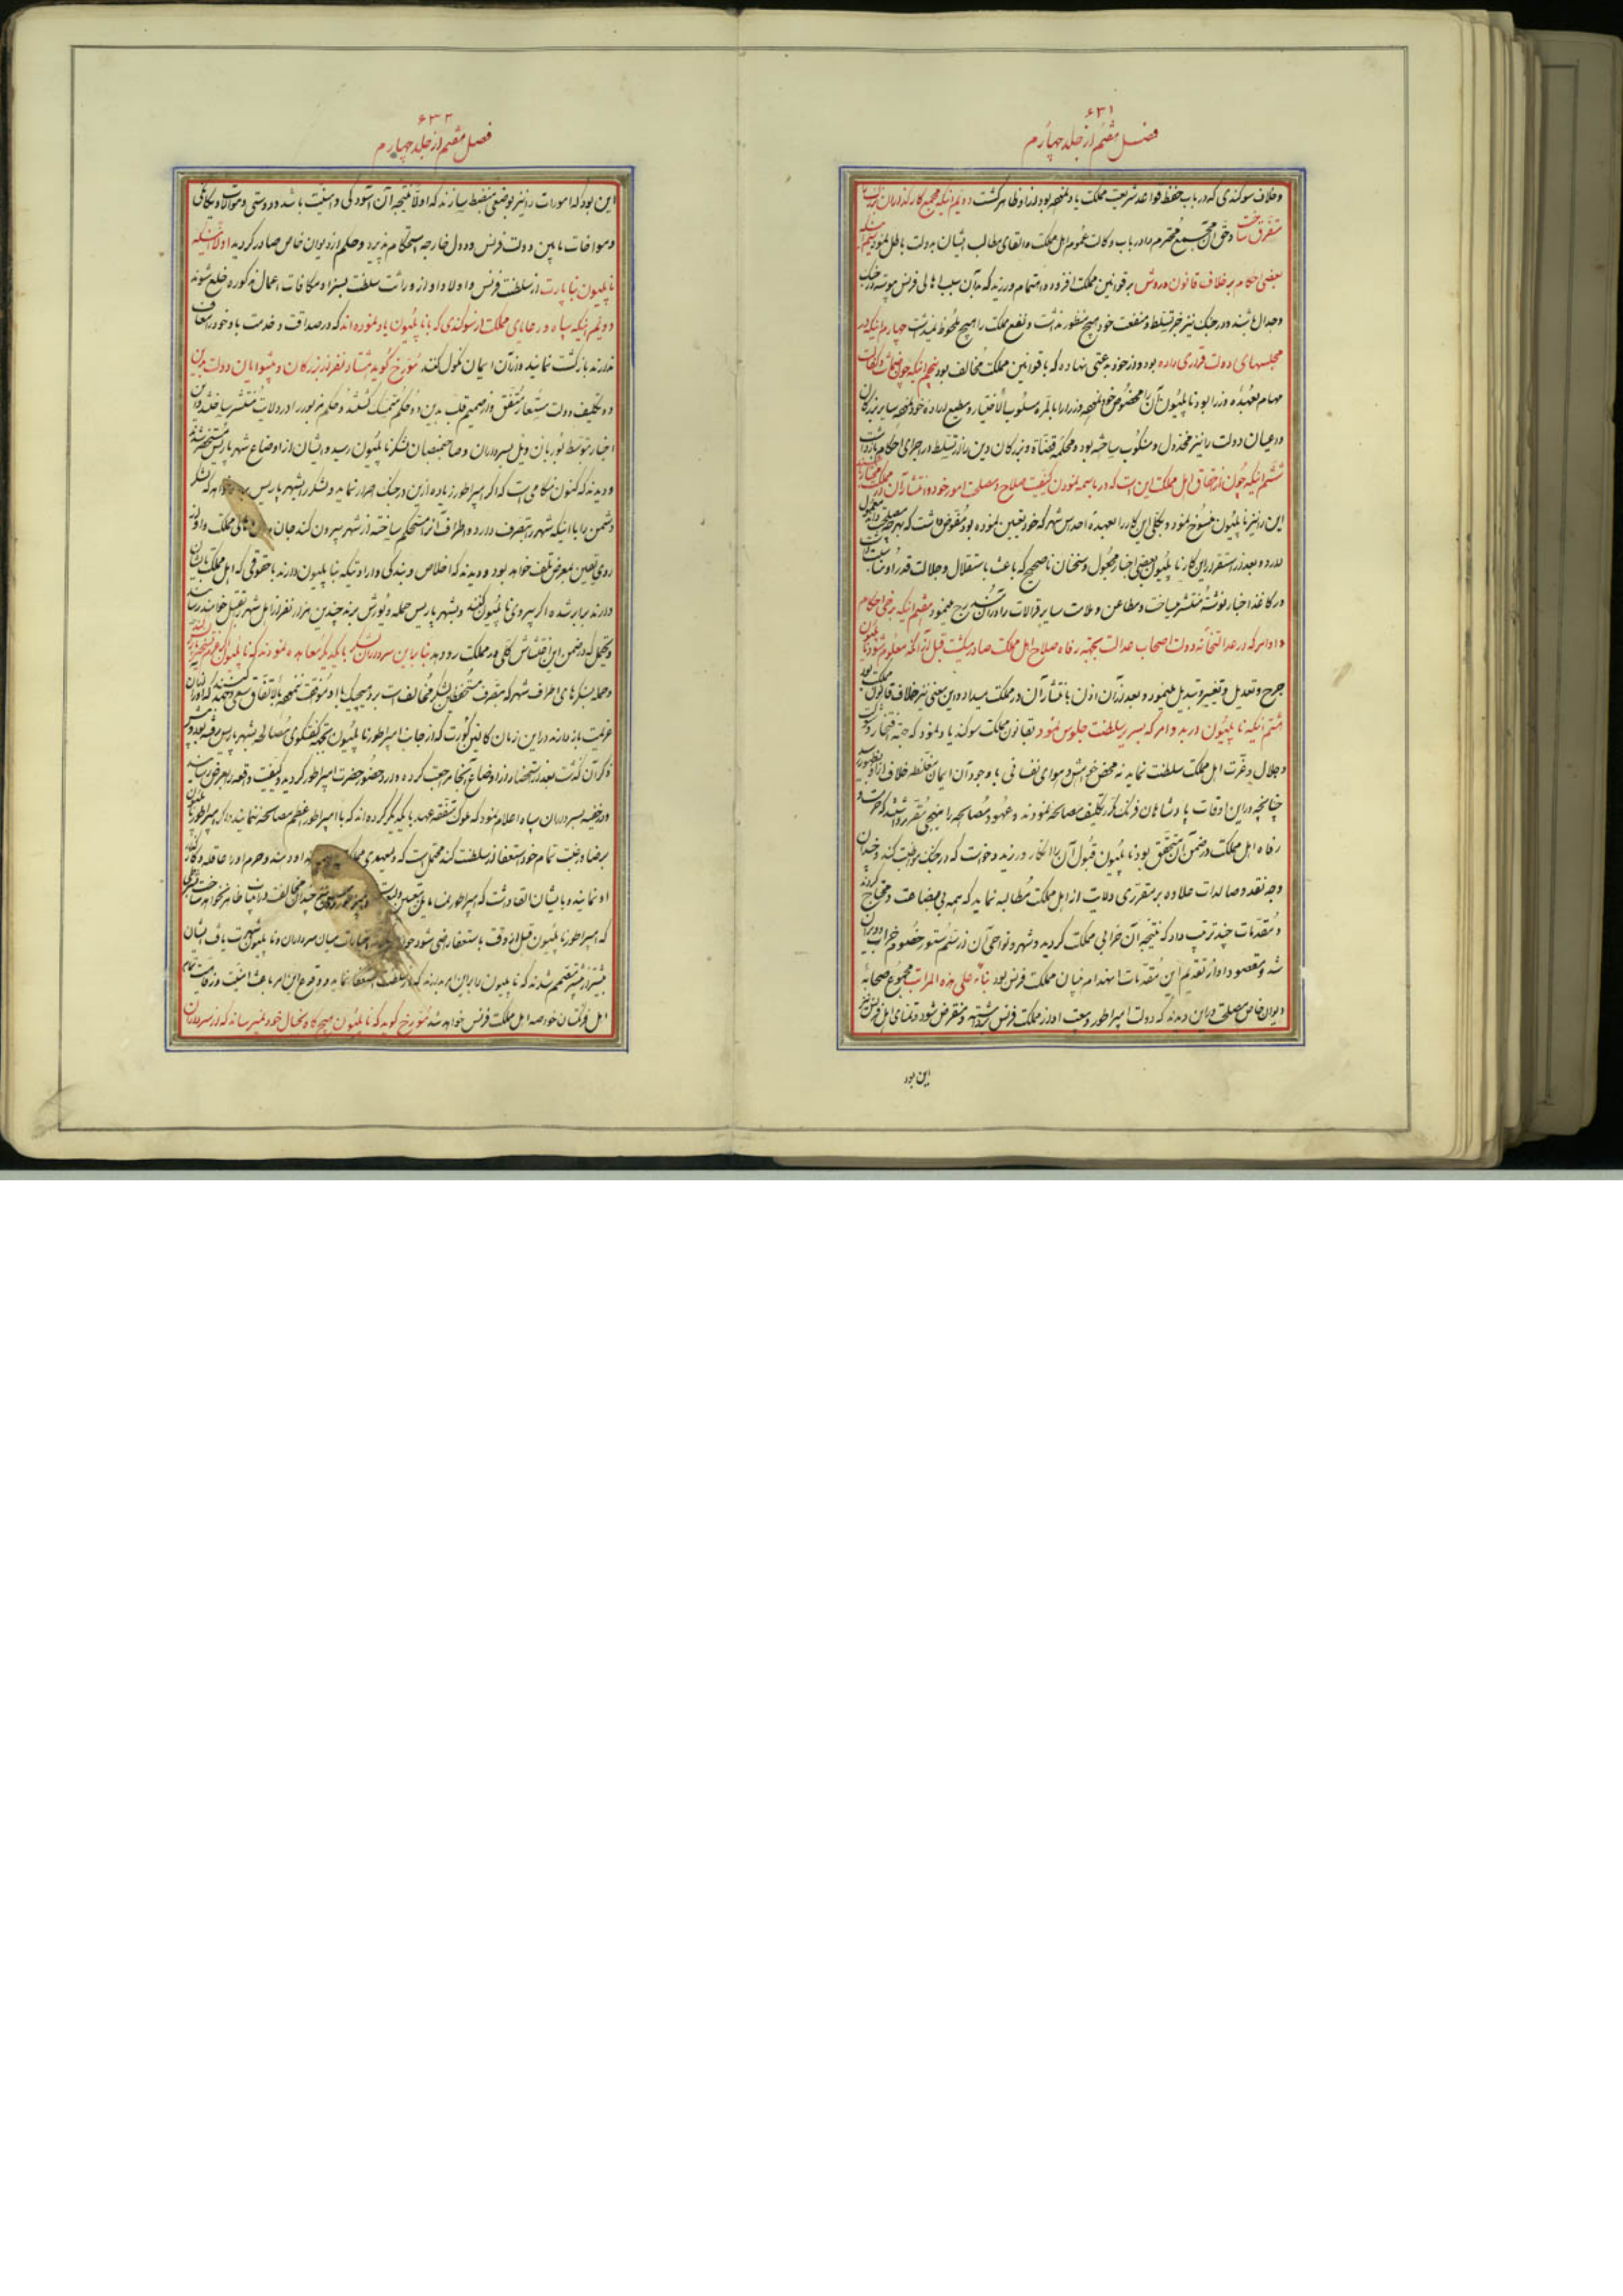 ۶۳۱
فصل هفتم از جلد چهارم
و خلاف سوکندی که در باب حفظ قواعد شریعت مملکت یاد نموده بود از او ظاهر کشت دویم اینکه مجمع کارکذاران
متفرق ساخت و حق آن مجمع محترم را در باب وکالت عموم اهل مملکت و القای مطالب ایشان به دولت باطل نمود سیم اینکه
بعضی احکام بر خلاف قانون و روش بر قوانین مملکت افزوده و اهتمام ورزید که بدان سبب اهالی فرنس پیوسته در جنک
و جدال باشند و در جنک نیز جز تسلط و منفعت خود هیچ منظور نداشت و نفع مملکت را هیچ ملحوظ نمیداشت چهارم اینکه در
مجلسهای دولت قراری داده بود و از خود بدعتی نهاده که با قوانین مملکت مخالف بود پنجم اینکه چون
مهام بعهده وزرا بود ناپلیون آن را مخصوص خود نموده وزرا را بالمره مسلوب الاختیار و مطیع اراده خود نموده سایر بزرکان
و اعیان دولت را نیز مخذول و منکوب ساخته بود و محکمه قضاة و بزرکان دین را از تسلط در اجرای احکام بازداشت
ششم اینکه چون اتفاق اهل مملکت این است که در باسمه نمودن کیفیت صلاح و مصلحت امور خود و انتشار آن در مملکت
این را نیز ناپلیون منسوخ نمود و بکلی این کار را بعهده احداس شهر که خود تعیین نموده بود مفوض داشت که بهرچه مصلحت
دارد و بعد از استقرار این کار ناپلیون بعضی اخبار مجعول و سخنان ناصحیح که باعث باستقلال و جلالت قدر او
در کاغذ اخبار نوشته منتشر میساخت و مطاعن و ملامت سایر قرالات را در آن مندرج مینمود هفتم اینکه برخی احکام
و اوامر که در عدالتخانه دولت اصحاب عدالت بجهة رفاه و صلاح اهل مملکت صادر میکشت قبل از آنکه معلوم شود ناپلیون
جرح و تعدیل و تغییر و تبدیل مینمود و بعد از آن اذن بانتشار آن در مملکت میداد و این معنی نیز خلاف قانون مملکت بود
هشتم اینکه ناپلیون در بدو امر که بسریر سلطنت جلوس نمود بقانون مملکت سوکند یاد نمود که جهة افتخار و شوکت
و جلال و عزت اهل مملکت سلطنت نماید نه محض خواهش و هوای نفسانی با وجود آن ایمان مغلظه خلاف از او بظهور رسید
چنانچه در این اوقات پادشاهان فرنک مکرر تکلیف مصالحه نمودند و عهود و مصالحه را بنهجی مقرر داشتند که حرمت و
رفاه اهل مملکت در ضمن آن متحقق بود ناپلیون قبول آن را انکار ورزید و خواست که در جنک مواظبت کند و چندان
وجه نقد و صالدات علاوه بر مقرری ولایت از اهل مملکت مطالبه نماید که همه بی بضاعت و محتاج کردند
و مقدمات چند ترتیب داد که نتیجه آن خرابی مملکت کردید و شهر و نواحی آن از سم ستور خصوم خراب و ویران
شد و مقصود او از تقدیم این مقدمات انهدام بنیان مملکت فرنس بود بناءً علی هذه المراتب مجموع صحابه
دیوان خاص مصلحت در آن دیدند که دولت امپراطور و بیعت او از مملکت فرنس برداشته و منقرض شود و تمنای اهل فرنس نیز
این بود
۶۳۲
فصل هفتم از جلد چهارم
این بود که امورات را نیز بوضعی منضبط سازند که اولاً نتیجه آن آسودکی و امنیت باشد و دوستی و موالات و یکانکی
و مواخات مابین دولت فرنس و دول خارجه استحکام پذیرد و حکم از دیوان خاص صادر کردید اولاً اینکه
ناپلیون بناپارت از سلطنت فرنس و اولاد او از وراثت سلطنت بسزا و مکافات اعمال مذکوره خلع شوند
دویم اینکه سپاه و رعایای مملکت از سوکندی که با ناپلیون یاد نموده اند که در صداقت و خدمت با وی خودرا معاف
ندارند بازکشت نمایند و از آن ایمان نکول کنند مورخ کوید هشتاد نفر از بزرکان و پیشوایان دولت بدین
و تکلیف دولت مستعار متفق و از صمیم قلب بدین دو حکم متمسک کشتند و حکم مزبور را در ولایت منتشر ساختند و این
اخبار بتوسط نوربان ویل بسرداران و صاحبمنصبان لشکر ناپلیون رسید و ایشان از اوضاع شهر پاریس مستحضر شدند
و دیدند که اکنون هنکامی است که اکر امپراطور زیاده از این در جنک اصرار نماید و لشکر بشهر پاریس که لشکر
دشمن را با اینکه شهر را بتصرف دارد و اطراف آنرا مستحکم ساخته از شهر بیرون کند جان اهالی مملکت و
روی یقین بمعرض تلف خواهد بود و دیدند که اخلاص و بندکی و ارادتیکه بناپلیون دارند با حقوقی که اهل مملکت بایشان
دارند برابر شده اکر پیروی ناپلیون کنند و بشهر پاریس حمله و یورش برند چندین هزار نفر از اهل شهر بقتل خواهند رسانید
و یحتمل که در ضمن این اغتشاش کلی در مملکت رو دهد بنابراین سرداران لشکر با یکدیکر معاهده نمودند که ناپلیون را
و حمله بسنکرهای اطراف شهر که بتصرف مستحفظین لشکر مخالف است برد هیچیک با او موافقت ننموده بالاتفاق سعی و جهد کنند که او را از آن
عزیمت بازدارند در این زمان کالین کورت که از جانب امپراطور ناپلیون بجهة کفتکوی مصالحه بشهر پاریس رفته بود و پیش
ذکر آن کذشت بعد از استحضار از اوضاع آنجا مراجعت کرده وارد حضور حضرت امپراطور کردید و کیفیت واقعه را بعرض رسانید
و در خفیه بسرداران سپاه اعلام نمود که ملوک متفقه عهد با یکدیکر کرده اند که با امپراطور اعظم مصالحه ننمایند و اکر امپراطور ناپلیون
برضا و رغبت تمام خود استعفا از سلطنت کند محتمل است که ولیعهدی اولاد او دهند و حرم او را عاقله و کارکذار
او نمایند و بایشان القا داشت که امپراطور نمسا مایل بتعیین
که امپراطور ناپلیون قبل از وقت باستعفا راضی شود میان سرداران و ناپلیون شهرت یافت ایشان
بیشتر از پیشتر مصمم شدند که ناپلیون را براین امر بدارند که از سلطنت استعفا نماید و وقوع این امر باعث امنیت و رفاهیت تمام
اهل فرنکستان خاصه اهل مملکت فرنس خواهد شد مورخ کوید که ناپلیون هیچکاه بخیال خود نمیرساند که از سرداران